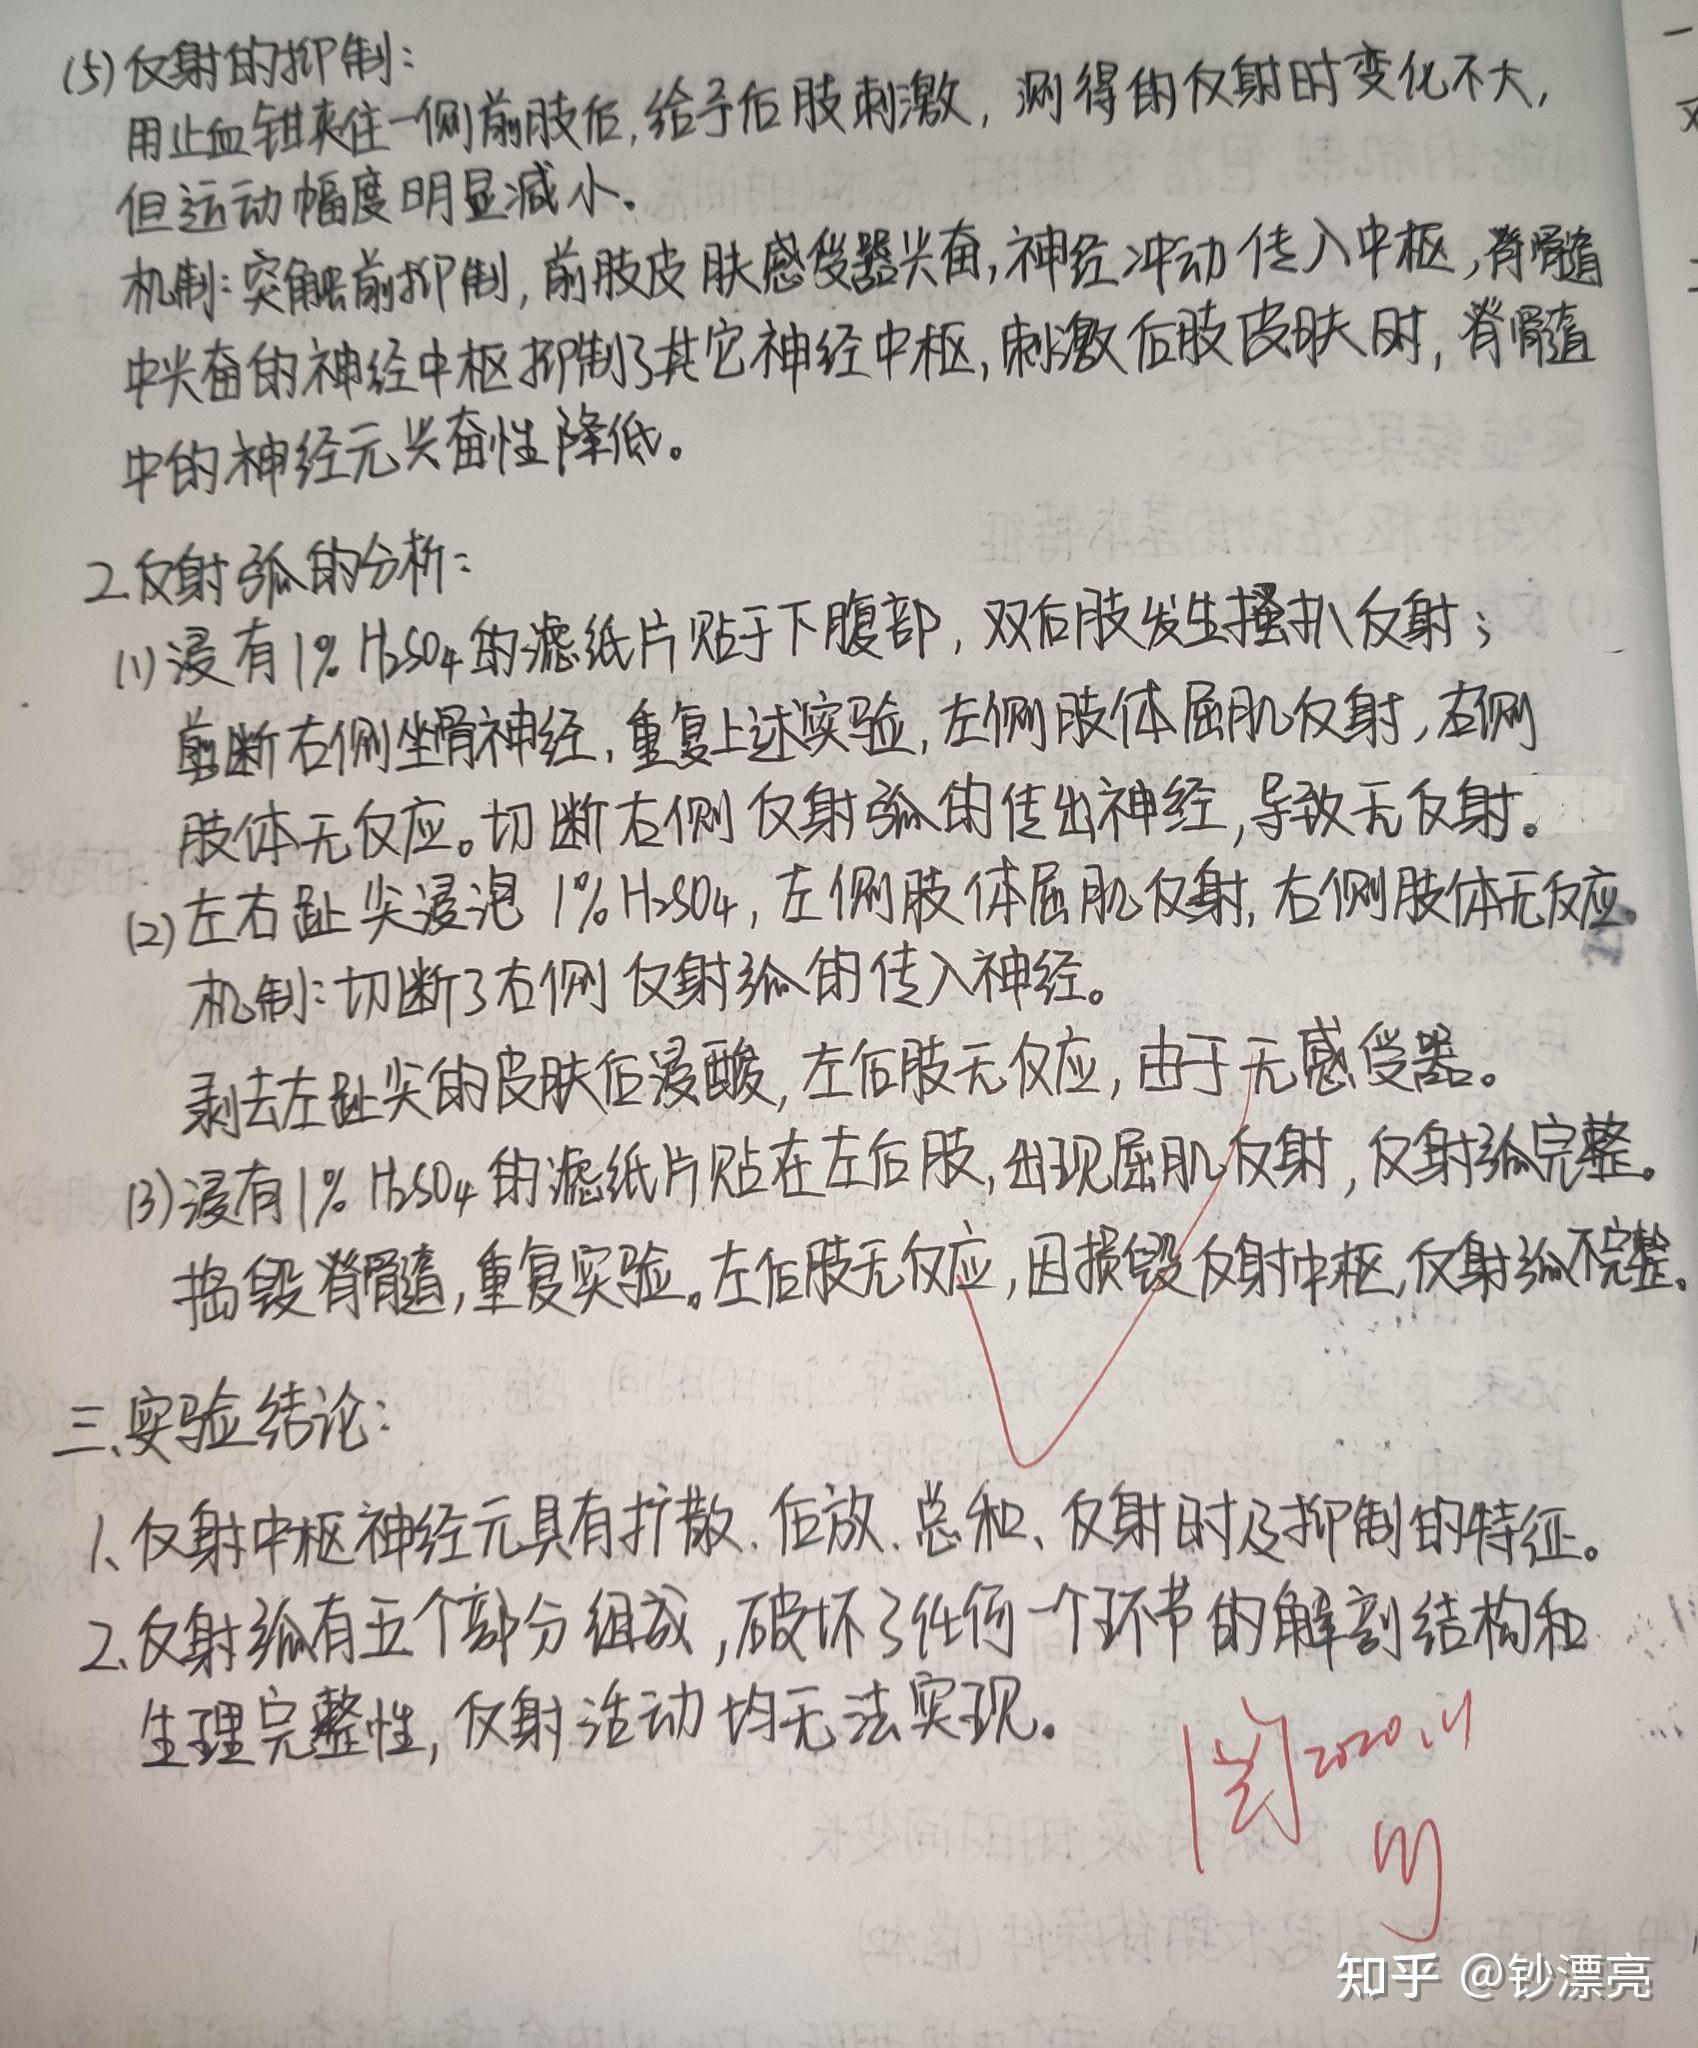 (5) 反射的抑制：
用止血钳夹住一侧前肢后，给予后肢刺激，测得的反射时变化不大，
但运动幅度明显减小。
机制：突触前抑制，前肢皮肤感受器兴奋，神经冲动传入中枢，脊髓
中兴奋的神经中枢抑制了其它神经中枢，刺激后肢皮肤时，脊髓
中的神经元兴奋性降低。
2.反射弧的分析：
(1) 浸有1% H₂SO₄的滤纸片贴于下腹部，双后肢发生搔扒反射；
剪断右侧坐骨神经，重复上述实验，左侧肢体屈肌反射，右侧
肢体无反应。切断右侧反射弧的传出神经，导致无反射。
(2) 左右趾尖浸泡1% H₂SO₄，左侧肢体屈肌反射，右侧肢体无反应。
机制：切断了右侧反射弧的传入神经。
剥去左趾尖的皮肤后浸酸，左后肢无反应，由于无感受器。
(3) 浸有1% H₂SO₄的滤纸片贴在左后肢，出现屈肌反射，反射弧完整。
捣毁脊髓，重复实验。左后肢无反应，因损毁反射中枢，反射弧不完整。
三、实验结论：
1、反射中枢神经元具有扩散、后放、总和、反射时及抑制的特征。
2、反射弧有五个部分组成，破坏了任何一个环节的解剖结构和
生理完整性，反射活动均无法实现。
阅 2020.11
知乎 @钞漂亮